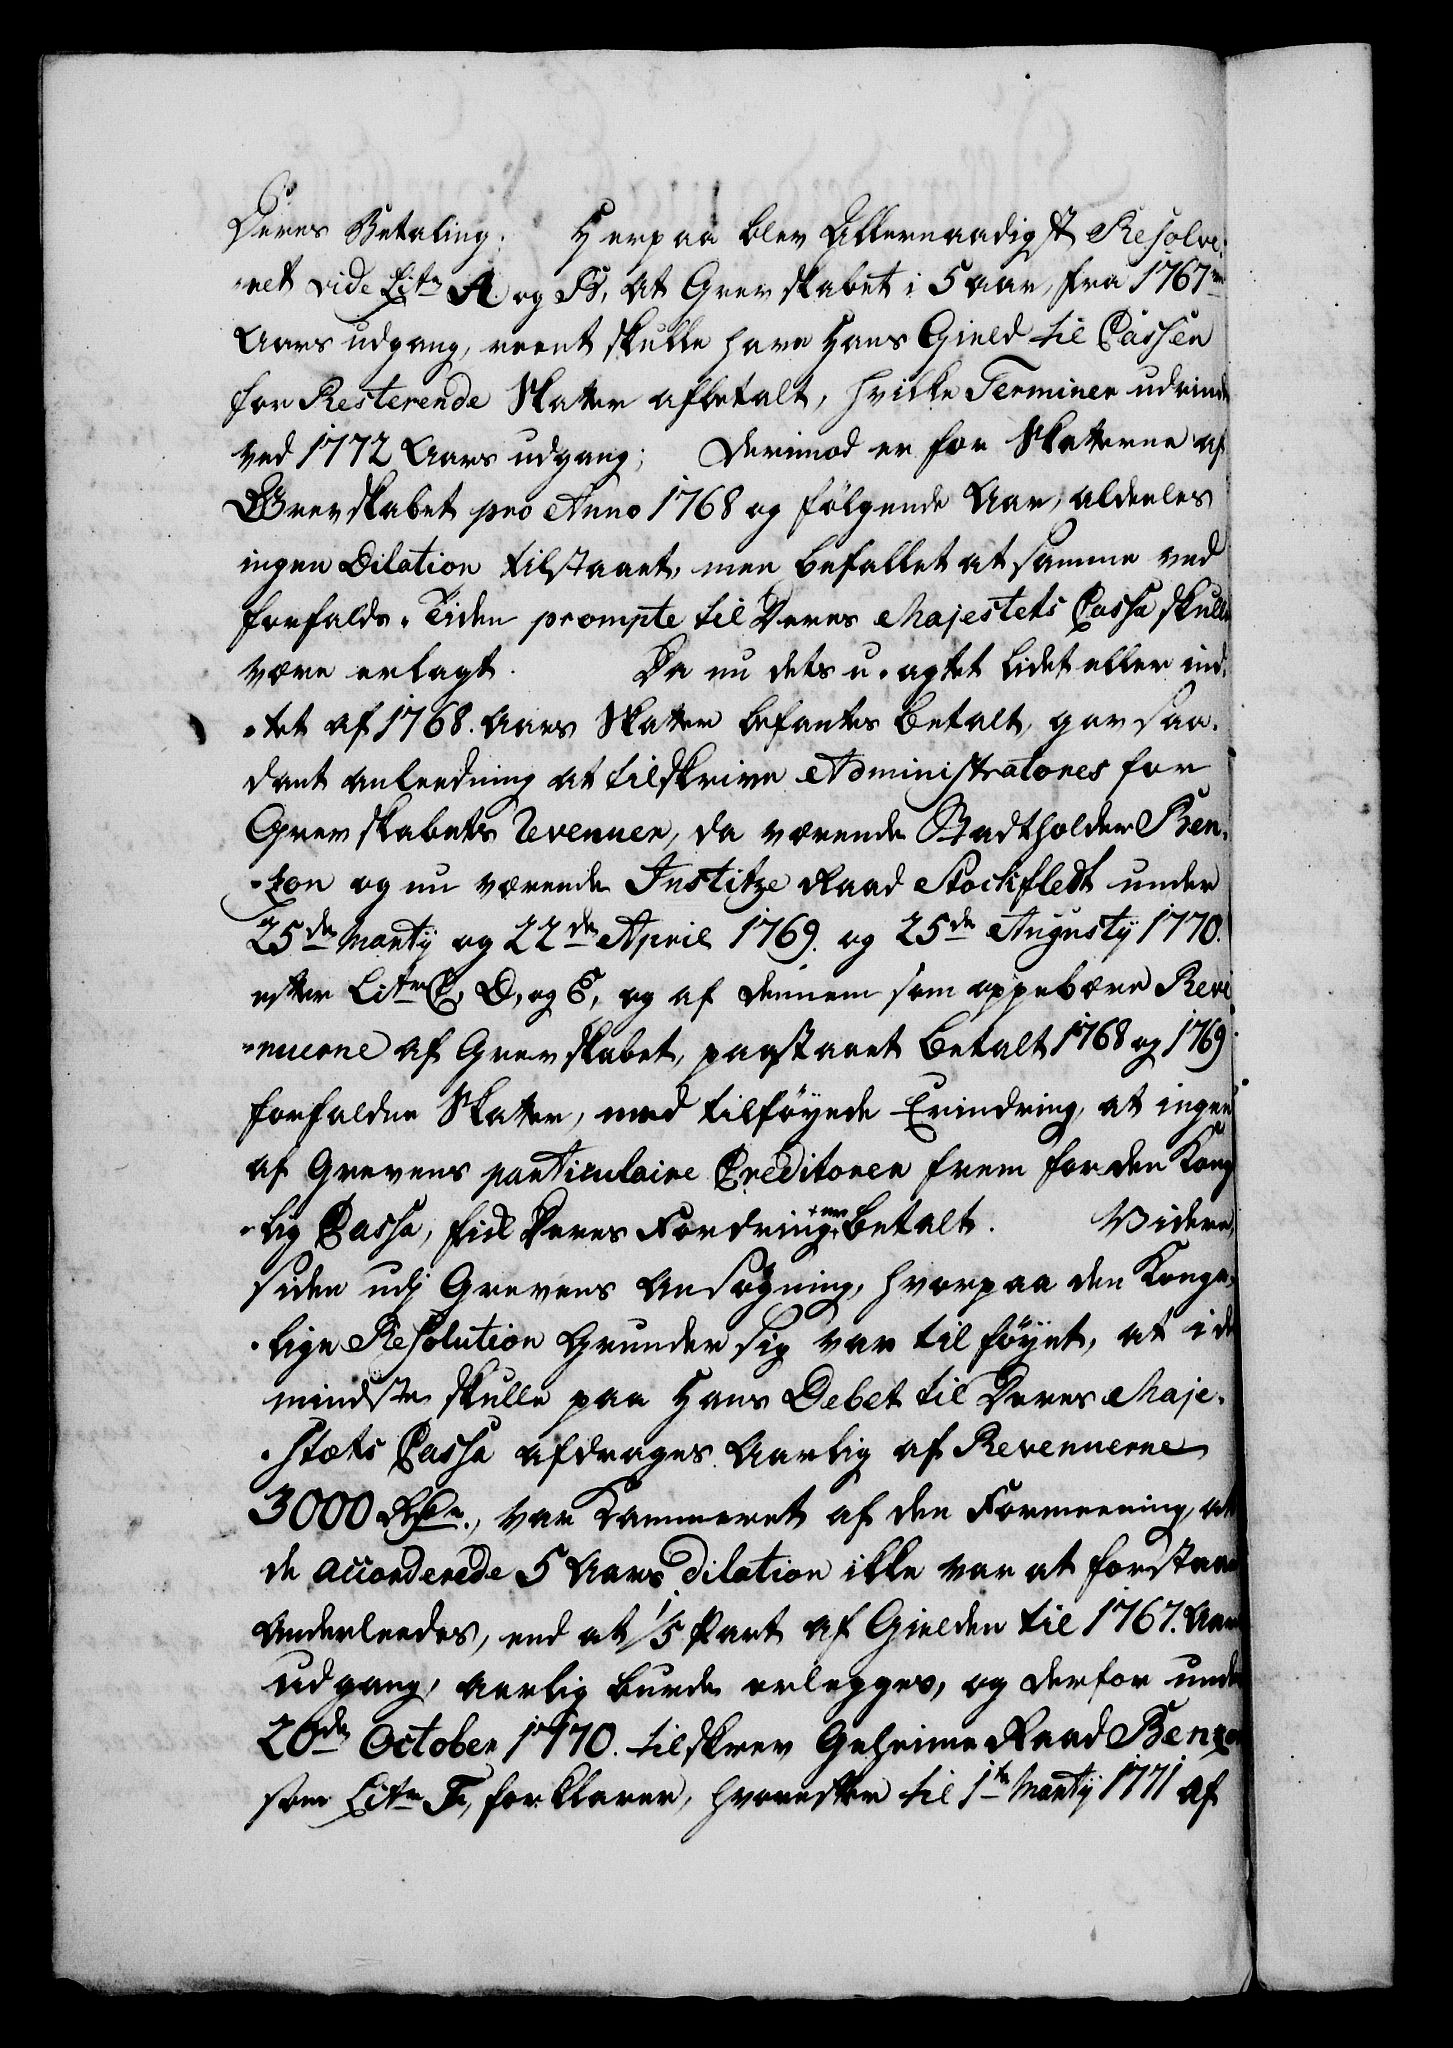 Deres Betaling. Herpaa blev Allernaadigst Resolve-
-ret vide Litr A og B, at Grevskabet i 5 aar, fra 1767
Aars udgang, reent skulle have Hans Gield til Cassen
for Resterende Skatter afbetalt, hvilke Terminer udrinde
ved 1772 Aars udgang; Derimod er for Skatterne af
Grevskabet pro Anno 1768 og følgende Aar, aldeeles
ingen Dilation tilstaaet, men befallet at samme ved
forfalds-Tiden prompte til Deres Majestets Cassa skulle
være erlagt. Da nu dets u-agtet lidet eller int-
-tet af 1768. Aars Skatter befantes betalt, gav saa-
dant anleedning at tilskrive Administratores for
Grevskabets Revenuer, da værende Stadtholder Ben-
-zon og nu værende Justitze Raad Stockfledt under
25de Martÿ og 22de April 1769. og 25de Augustÿ 1770.
efter Litr C, D, og E, og af dennem som oppebære Reve
-nuerne af Grevskabet, paastaaet betalt 1768 og 1769
forfaldne Skatter, med tilføyede Erindring, at ingen
af Grevens particulaire Creditorer frem for den Konge
-lig Cassa, fik Deres Fordringer betalt. Videre,
siden udj Grevens Ansøgning, hvorpaa den Konge-
-lige Resolution grunder sig var tilføyet, at i det
mindste skulle paa Hans Debet til Deres Maje-
-stæts Cassa afdrages Aarlig af Revenuerne
3000 Rdr., var Kammeret af den Formeening, at
de accorderede 5 Aars dilation ikke var at forstaae
Anderleedes, end at 1/5 Part af Gielden til 1767. Aars
udgang, aarlig burde erlegges, og derfor under
20de October 1770. tilskrev Geheime Raad Benzon
som Litr F, forklarer, hvorefter til 1te Martÿ 1771 af